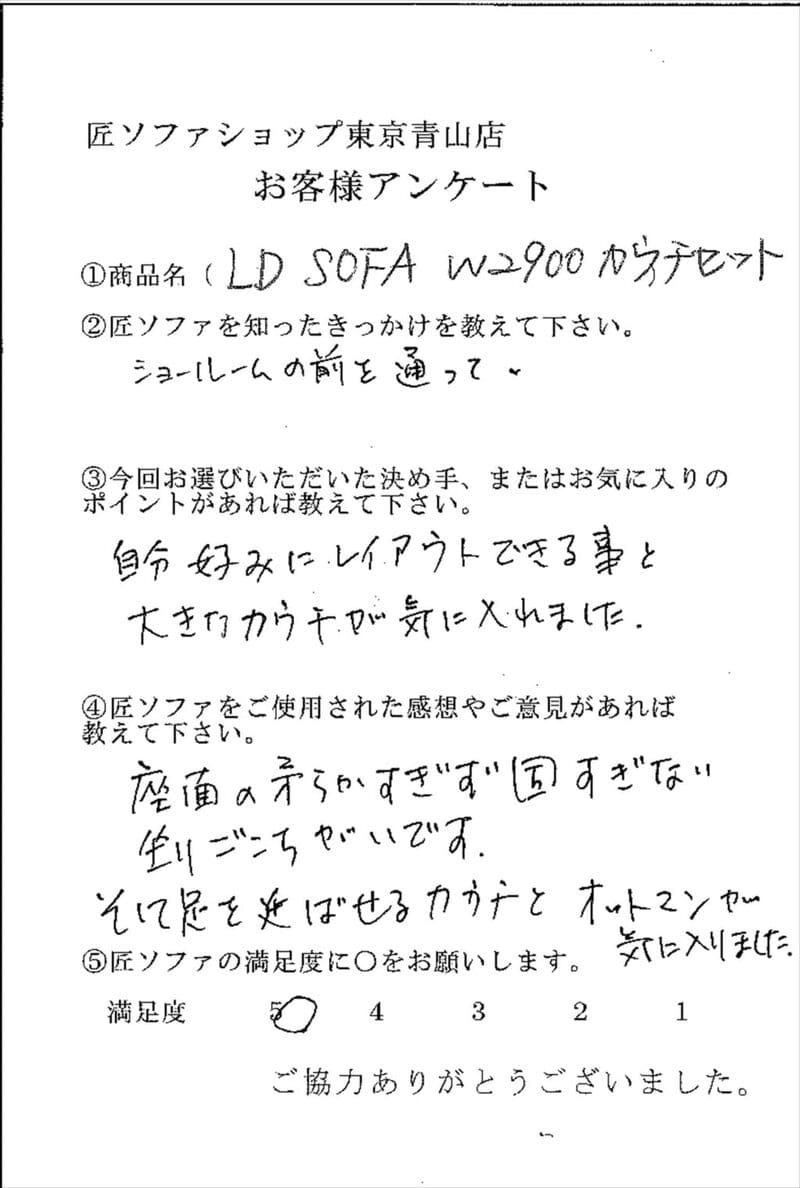 匠ソファショップ東京青山店
お客様アンケート
①商品名（ LD SOFA W2900 カウチセット
②匠ソファを知ったきっかけを教えて下さい。
ショールームの前を通って、
③今回お選びいただいた決め手、またはお気に入りの
ポイントがあれば教えて下さい。
自分好みにレイアウトできる事と
大きなカウチが気に入れました.
④匠ソファをご使用された感想やご意見があれば
教えて下さい。
座面の柔らかすぎず固すぎない
坐りごこちがいいです.
そして足を延ばせるカウチとオットマンが
気に入りました.
⑤匠ソファの満足度に〇をお願いします。
満足度 5 4 3 2 1
ご協力ありがとうございました。